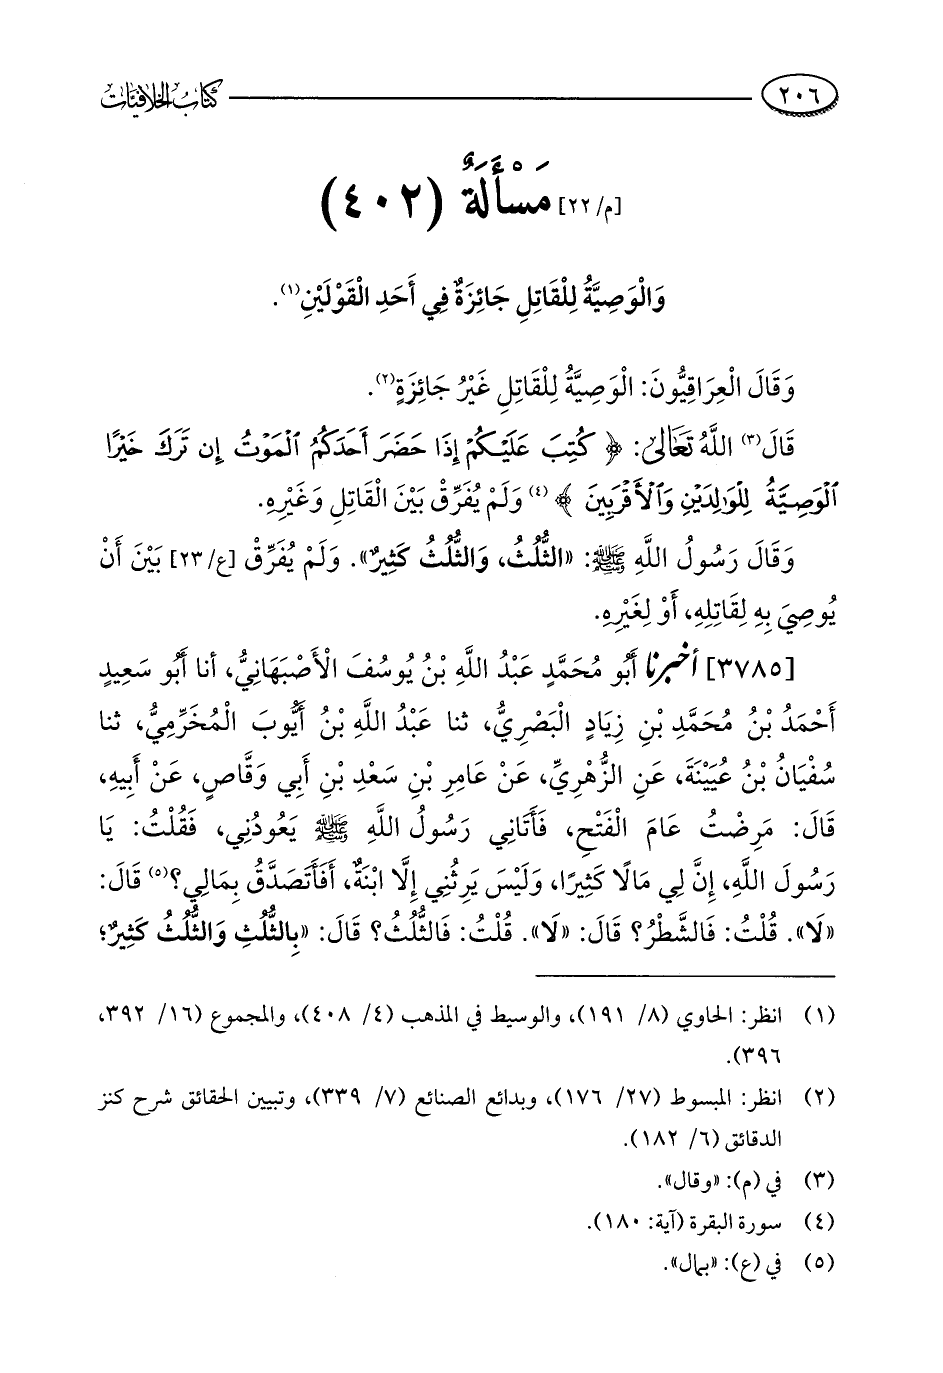 ٢٠٦ كتاب الخلافيات
[م/ ٢٢] مَسْأَلَةٌ (٤٠٢)
وَالْوَصِيَّةُ لِلْقَاتِلِ جَائِزَةٌ فِي أَحَدِ الْقَوْلَيْنِ(١).
وَقَالَ الْعِرَاقِيُّونَ: الْوَصِيَّةُ لِلْقَاتِلِ غَيْرُ جَائِزَةٍ(٢).
قَالَ(٣) اللَّهُ تَعَالَى: ﴿ كُتِبَ عَلَيْكُمْ إِذَا حَضَرَ أَحَدَكُمُ ٱلْمَوْتُ إِن تَرَكَ خَيْرًا
ٱلْوَصِيَّةُ لِلْوَٰلِدَيْنِ وَٱلْأَقْرَبِينَ ﴾(٤) وَلَمْ يُفَرِّقْ بَيْنَ الْقَاتِلِ وَغَيْرِهِ.
وَقَالَ رَسُولُ اللَّهِ ﷺ: «الثُّلُثُ، وَالثُّلُثُ كَثِيرٌ». وَلَمْ يُفَرِّقْ [ع/ ٢٣] بَيْنَ أَنْ
يُوصِيَ بِهِ لِقَاتِلِهِ، أَوْ لِغَيْرِهِ.
[٣٧٨٥] أخبرنا أَبُو مُحَمَّدٍ عَبْدُ اللَّهِ بْنُ يُوسُفَ الْأَصْبَهَانِيُّ، أنا أَبُو سَعِيدٍ
أَحْمَدُ بْنُ مُحَمَّدِ بْنِ زِيَادٍ الْبَصْرِيُّ، ثنا عَبْدُ اللَّهِ بْنُ أَيُّوبَ الْمُخَرِّمِيُّ، ثنا
سُفْيَانُ بْنُ عُيَيْنَةَ، عَنِ الزُّهْرِيِّ، عَنْ عَامِرِ بْنِ سَعْدِ بْنِ أَبِي وَقَّاصٍ، عَنْ أَبِيهِ،
قَالَ: مَرِضْتُ عَامَ الْفَتْحِ، فَأَتَانِي رَسُولُ اللَّهِ ﷺ يَعُودُنِي، فَقُلْتُ: يَا
رَسُولَ اللَّهِ، إِنَّ لِي مَالًا كَثِيرًا، وَلَيْسَ يَرِثُنِي إِلَّا ابْنَةٌ، أَفَأَتَصَدَّقُ بِمَالِي؟(٥) قَالَ:
«لَا». قُلْتُ: فَالشَّطْرُ؟ قَالَ: «لَا». قُلْتُ: فَالثُّلُثُ؟ قَالَ: «بِالثُّلُثِ وَالثُّلُثُ كَثِيرٌ؛
(١) انظر: الحاوي (٨/ ١٩١)، والوسيط في المذهب (٤/ ٤٠٨)، والمجموع (١٦/ ٣٩٢،
٣٩٦).
(٢) انظر: المبسوط (٢٧/ ١٧٦)، وبدائع الصنائع (٧/ ٣٣٩)، وتبيين الحقائق شرح كنز
الدقائق (٦/ ١٨٢).
(٣) في (م): «وقال».
(٤) سورة البقرة (آية: ١٨٠).
(٥) في (ع): «بمال».